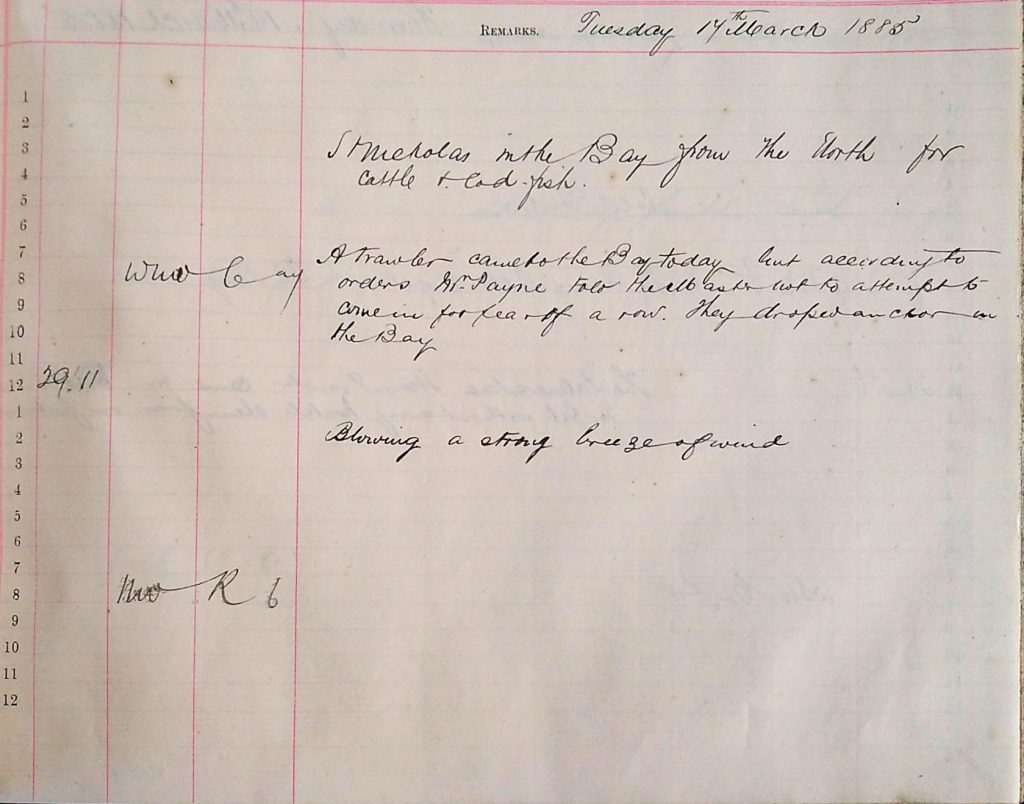 REMARKS. Tuesday 17th March 1885
1
2
3 St Nicholas in the Bay from the North for
4 cattle & Cod-fish.
5
6
7 A trawler came to the Bay today but according to
8 WNW orders Mr. Payne told the Master not to attempt to
9 come in for fear of a row. They droped anchor in
10 the Bay
11
12 29.11
1
2 Blowing a strong breeze of wind
3
4
5
6
7
8 R 6
9
10
11
12